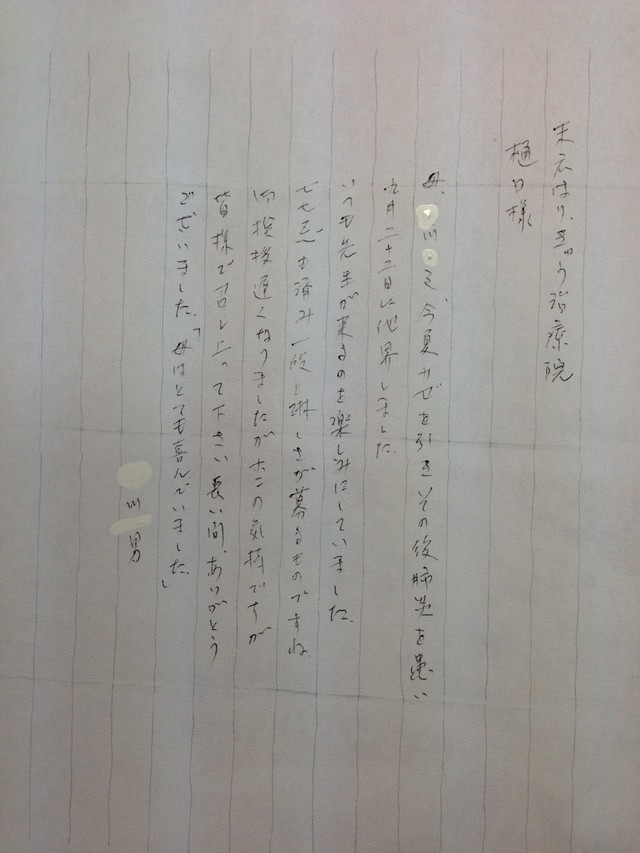 末広はり、きゅう治療院
樋口様
母、川ミ今夏カゼを引きその後肺炎を患い
九月二十二日に他界しました
いつも先生が来るのを楽しみにしていました。
七七忌も済み一段と淋しさが募るものですね
御挨拶遅くなりましたがホンの気持ですが
皆様で召し上って下さい長い間、ありがとう
ございました。「母はとても喜んでいました。」
川男